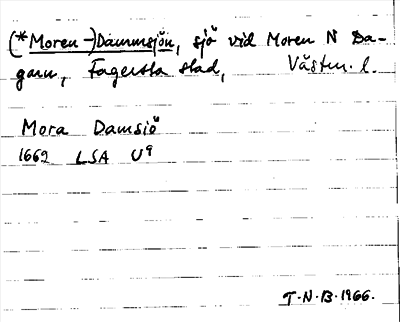 (*Moren-)Dammsjön, sjö vid Moren N Da-
garn, Fagersta stad, Västm. l.
Mora Damsiö
1662 LSA U9
T·N·B·1966.